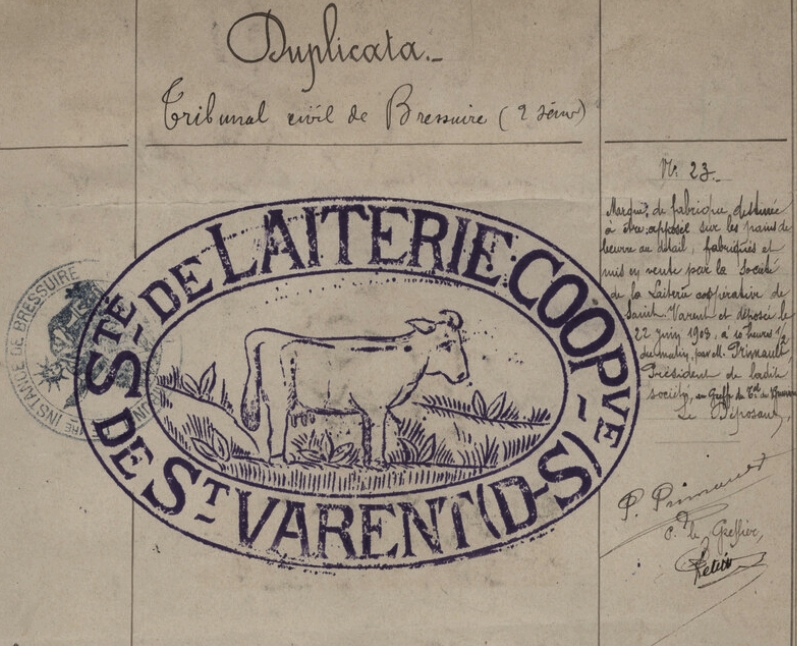 Duplicata.
Tribunal civil de Bressuire (2 Sèvres)
STÉ DE LAITERIE COOPVE
DE ST VARENT (D-S)
INSTANCE DE BRESSUIRE
N: 23.
Marque de fabrique destinée
à être apposée sur les pains de
beurre au détail, fabriqués et
mis en vente par la Société
de la Laiterie coopérative de
Saint-Varent et déposée le
22 juin 1903, à 10 heures 1/2
du matin, par M. Primault,
Président de ladite
société, au Greffe du
Le Déposant,
P. Primault
P. le Greffier,